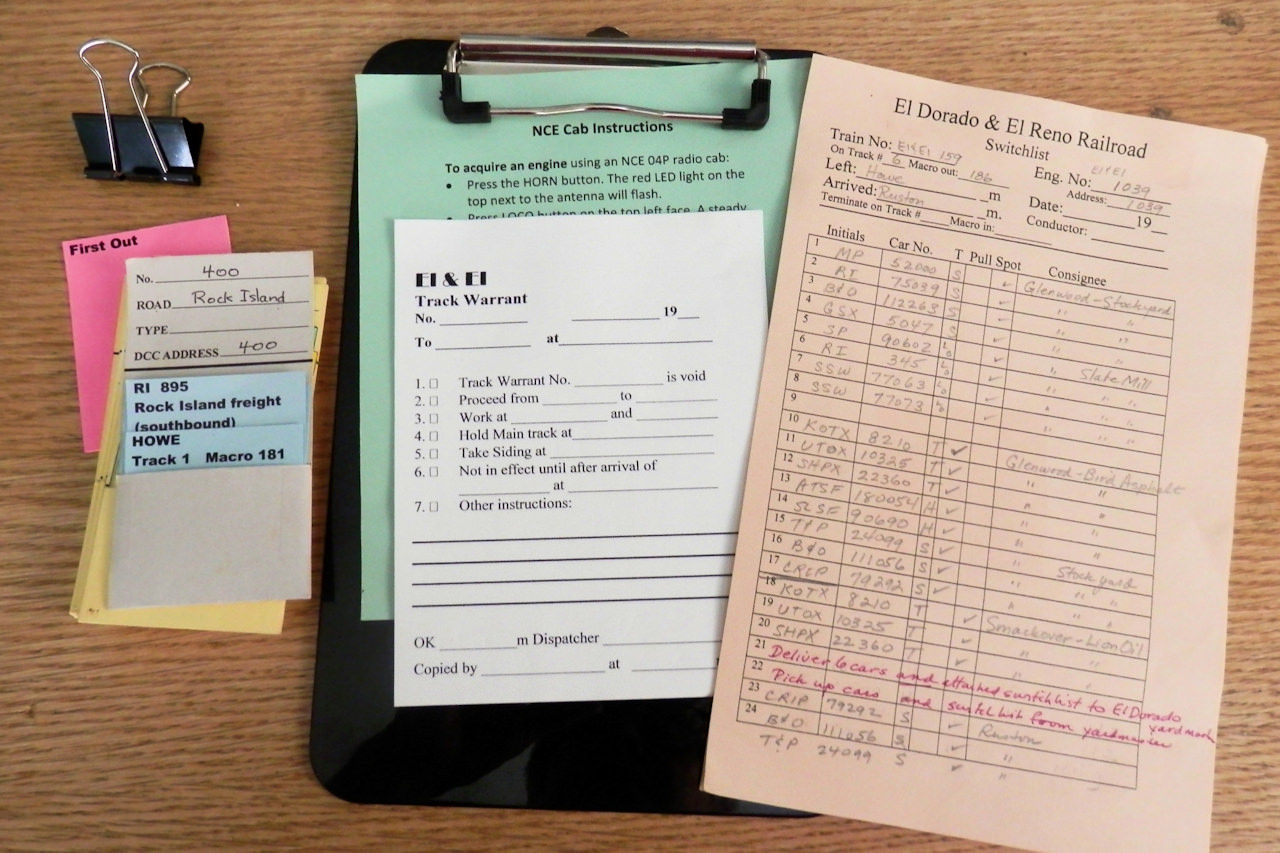 First Out
No. 400
ROAD Rock Island
TYPE
DCC ADDRESS 400
RI 895
Rock Island freight
(southbound)
HOWE
Track 1 Macro 181
NCE Cab Instructions
To acquire an engine using an NCE 04P radio cab:
• Press the HORN button. The red LED light on the
top next to the antenna will flash.
• Press LOCO button on the top left face. A steady
EI & EI
Track Warrant
No. 19
To at
1. □ Track Warrant No. is void
2. □ Proceed from to
3. □ Work at and
4. □ Hold Main track at
5. □ Take Siding at
6. □ Not in effect until after arrival of
at
7. □ Other instructions:
OK m Dispatcher
Copied by at
El Dorado & El Reno Railroad
Switchlist
Train No: EI&EI 159 Eng. No: EI&EI 1039
On Track # 6 Macro out: 186 Address: 1039
Left: Howe m Date: 19
Arrived: Ruston m. Conductor:
Terminate on Track # Macro in:
Initials Car No. T Pull Spot Consignee
1 MP 52000 S ✓ Glenwood-Stockyard
2 RI 75039 S ✓ " "
3 B&O 112263 S ✓ " "
4 GSX 5047 S ✓ " "
5 SP 90602 Lo ✓ " Slate Mill
6 RI 345 Lo ✓ " "
7 SSW 77063 Lo ✓ " "
8 SSW 77073 Lo ✓ " "
9
10 KOTX 8210 T ✓ Glenwood-Bird Asphalt
11 UTOX 10325 T ✓ " "
12 SHPX 22360 T ✓ " "
13 ATSF 180054 H ✓ " "
14 SLSF 90690 H ✓ " "
15 T&P 24099 S ✓ " Stockyard
16 B&O 111056 S ✓ " "
17 CRIP 79292 S ✓ " "
18 KOTX 8210 T ✓ Smackover-Lion Oil
19 UTOX 10325 T ✓ " "
20 SHPX 22360 T ✓ " "
21 Deliver 6 cars and attached switchlist to El Dorado yardmaster
22 Pick up cars and switch list from yardmaster
23 CRIP 79292 S ✓ Ruston
24 B&O 111056 S ✓ "
T&P 24099 S ✓ "